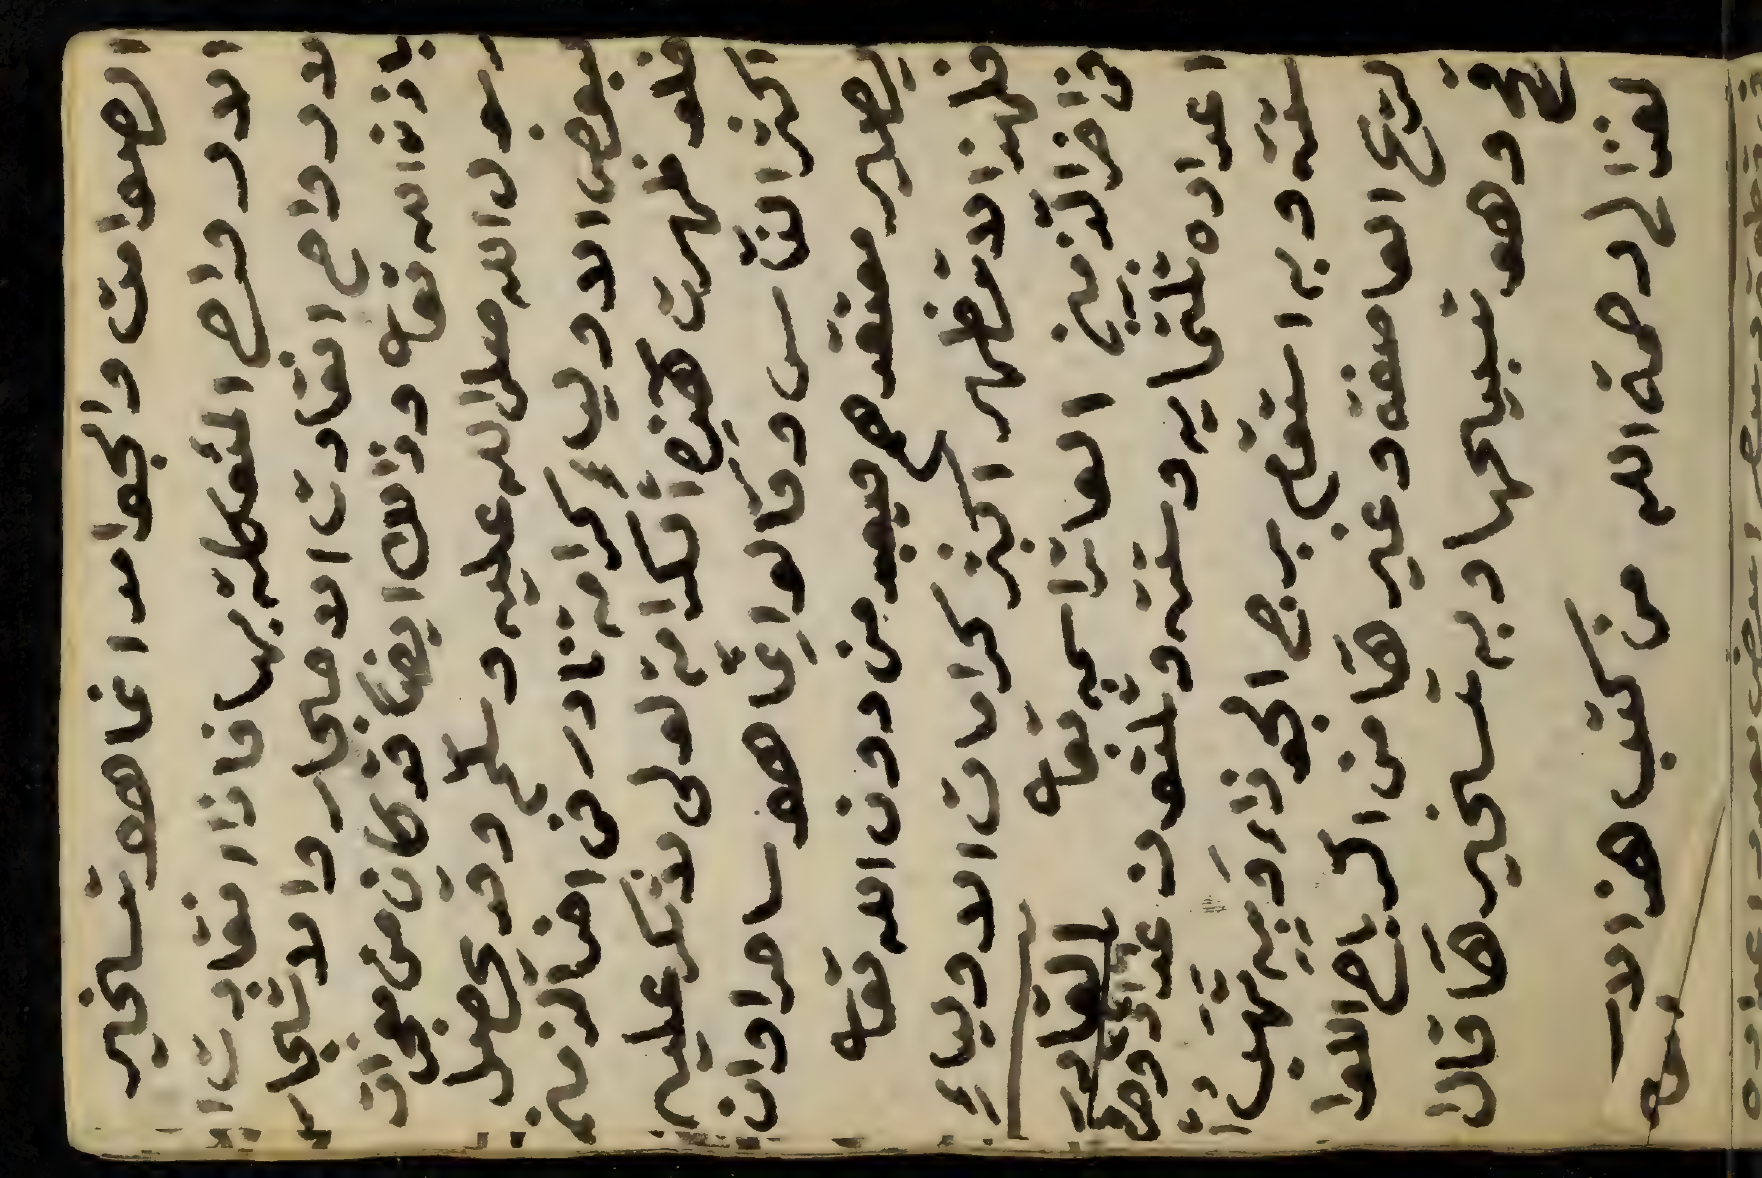 الصوامت والجوامد انما هو تسخير
الارواح المتوكلة بها فاذا انقادت ا
لارواح انقادت الاحجار والاشجار
باذن الله تعالى وذلك ايضا قد كان من معجزات
رسول الله صلى الله عليه وسلم وقد يحصل
لبعض الاولياء كرامة نادر في الزمن
فلو ظهرت هذه الكرامة لولي لانكر عليه
اكثر الناس وقالوا انما هو ساحر او ان
يصير معتقدهم يعبد من دون الله تعالى
فلهذا لا تظهر اكثر كرامات الاولياء
في اخر الزمن اسمه تعالى القادر
اعداده ثلثماية وستة وثلثون عدد
ستة وبه برج الجوزا وبه تهب
لريح العاصفة وغيرها من ارياح اللوا
قح وهو تسبيحها وبه تسخيرها قال
رحمة الله من كتب هذا الا